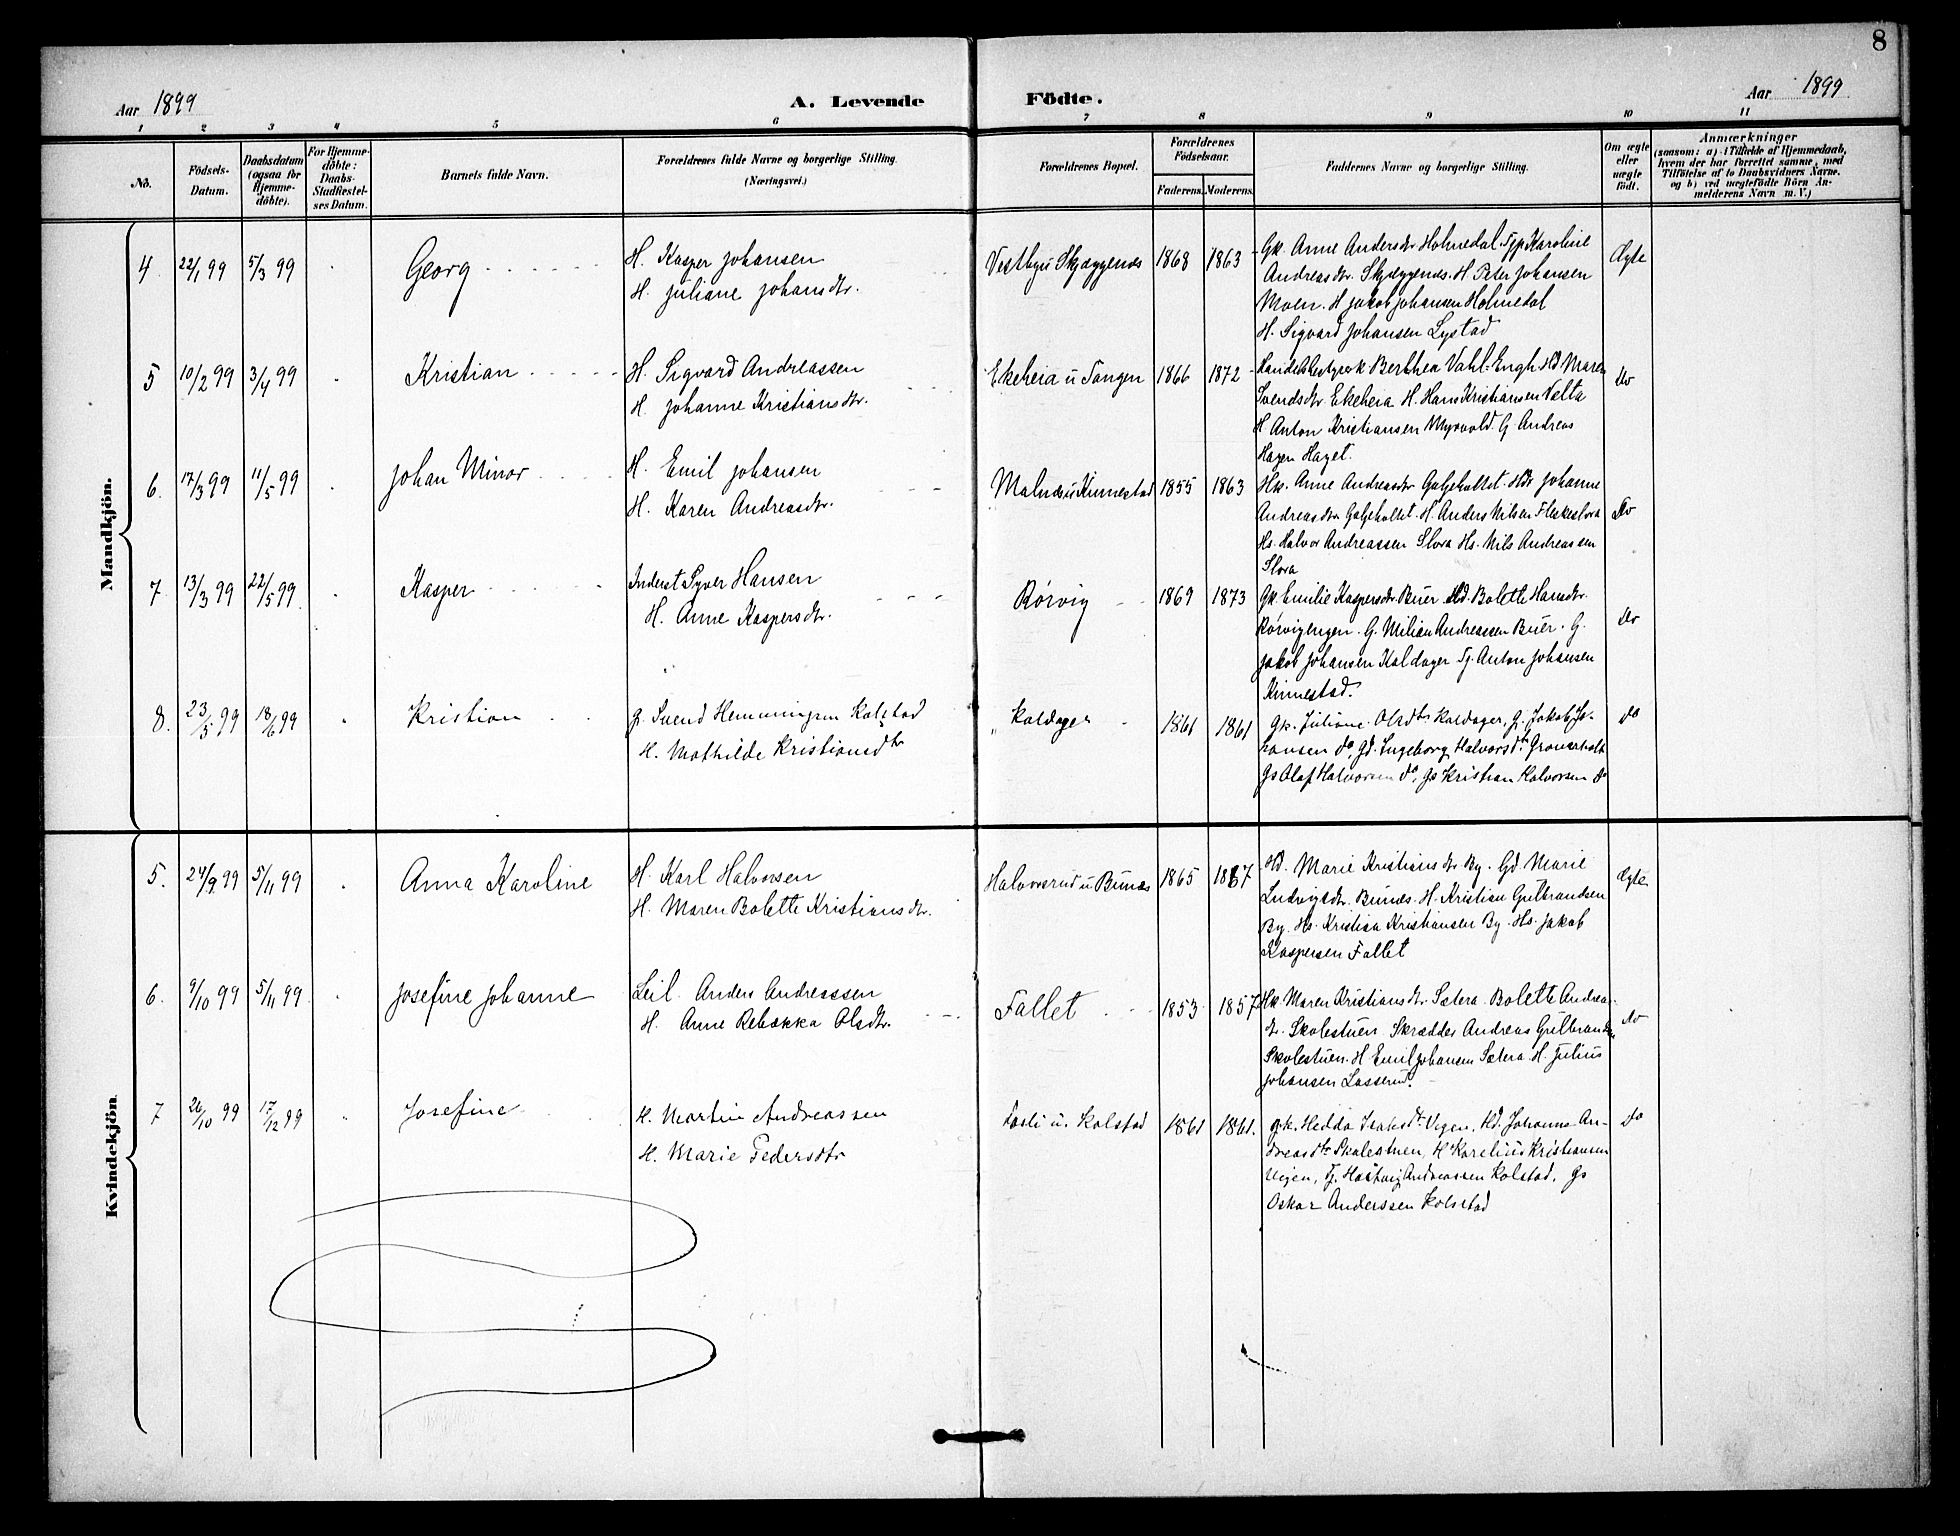 8
Aar 1899
A. Levende Födte.
Aar 1899
1 2 3 4 5 6 7 8 9 10 11
No.
Födsels-Datum.
Daabsdatum (ogsaa for Hjemmedöbte).
For Hjemmedöbte: Daabs-Stadfæstelses Datum.
Barnets fulde Navn.
Forældrenes fulde Navne og borgerlige Stilling. (Næringsvei.)
Forældrenes Bopæl.
Forældrenes Födselsaar.
Faderens. Moderens.
Faddernes Navne og borgerlige Stilling.
Om ægte eller uægte födt.
Anmærkninger
(saasom: a) i Tilfælde af Hjemmedaab,
hvem der har forrettet samme, med
Tilföielse af to Daabsvidners Navne.
og b) ved uægtefödte Börn An-
melderens Navn m. V.)
Mandkjön.
4 22/1 99 5/3 99 Georg H. Kasper Johansen
H. Juliane Johansdtr.
Vestby u Skjæggenæs 1868 1863 Gk. Anne Andersdtr Holmedal. Karoline
Andreasdtr. Skjæggenæs. H Peter Johansen
Moen. H Jakob Johansen Holmedal
H. Sigvard Johansen Lystad
Ægte
5 10/2 99 3/4 99 Kristian H. Sigvard Andreassen
H. Johanne Kristiansdtr.
Ekeheia u Tangen 1866 1872 Berthea Vahl-Engh Maren
Svendsdtr. Ekeheia H. Hans Kristiansen Velta
H Anton Kristiansen Myrvold. G. Andreas
Hagen Haget.
do
6. 17/3 99 11/5 99 Johan Minor H. Emil Johansen
H. Karen Andreasdtr.
u Kinnestad 1855 1863 Hk. Anne Andreasdtr Galgeholtet. Johanne
Andreasdtr Galgeholtet. H. Anders Nilsen
Hs. Halvor Andreassen Slora Hs. Nils Andreassen
Slora
do
7. 13/3 99 22/5 99 Kasper Inderst Syver Hansen
H. Anne Kaspersdtr.
Rörvig 1869 1873 Gk. Emilie Kaspersdtr. Buer. Bolette Hansdtr.
Rörvigengen. G. Milian Andreassen Buer. G.
Jakob Johansen Kaldager Tj. Anton Johansen
Kinnestad.
do
8. 23/5 99 18/6 99 Kristian G. Svend Hemmingsen Kolstad
H. Mathilde Kristiansdtr
Kaldager 1861 1861 Gk. Juliane Olsdtr Kaldager, G. Jakob Jo-
hansen do, Gd. Ingeborg Halvorsdtr.
Gs Olaf Halvorsen do, Gs Kristian Halvorsen do
do
Kvindekjön.
5. 24/9 99 5/11 99 Anna Karoline H. Karl Halvorsen
H. Maren Bolette Kristiansdtr.
Halvorsrud u Bunæs 1865 1867 Hd. Marie Kristiansdtr By. Gd. Marie
Ludvigsdtr. Bunæs. H. Kristian Gulbrandsen
By. Hs. Kristian Kristiansen By. Hs. Jakob
Kaspersen Fallet
Ægte
6. 9/10 99 5/11 99 Josefine Johanne Leil. Anders Andreassen
H. Anne Rebækka Olsdtr.
Fallet 1853 1857 Hk. Maren Kristiansdtr. Sætera. Bolette Andreas-
dtr. Skolestuen. Skrædder Andreas Gulbrandsen
Skolestuen. H Emil Johansen Sætera. H. Julius
Johansen Lasserud.
do
7 26/10 99 17/12 99 Josefine H. Martin Andreassen
H. Marie Pedersdtr
u. Kolstad 1861 1861. Gk. Hedda Isaksdtr Vigen, Hd. Johanne An-
dreasdtr Skolestuen, H Karelius Kristiansen
Vigen, Tj. Hartvig Andreassen Kolstad, Gs
Oskar Anderssen Kolstad
do